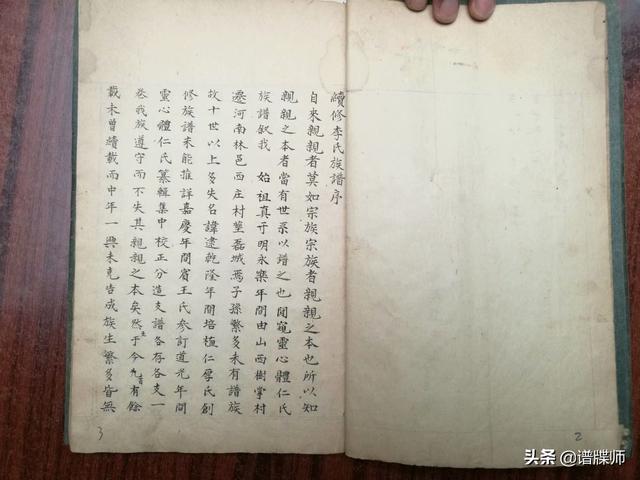 續修李氏族譜序
自來親親者莫如宗族宗族者親親之本也所以知
親親之本者當有世系以譜之也閱寬靈心體仁氏
族譜叙我 始祖真于明永樂年間由山西樹掌村
遷河南林邑西庄村墓磊城焉子孫繁多未有譜族
故十世以上多失名諱逮乾隆年間培植仁厚氏創
修族譜未能推詳嘉慶年間賓王氏参訂道光年間
靈心體仁氏纂輯集中校正分造支譜各存各支一
卷我族遵守而不失其親親之本矣然于今九有餘
載未曾續載而中年一興未克告成族生繁多皆無
3
2
头条@谱牒师